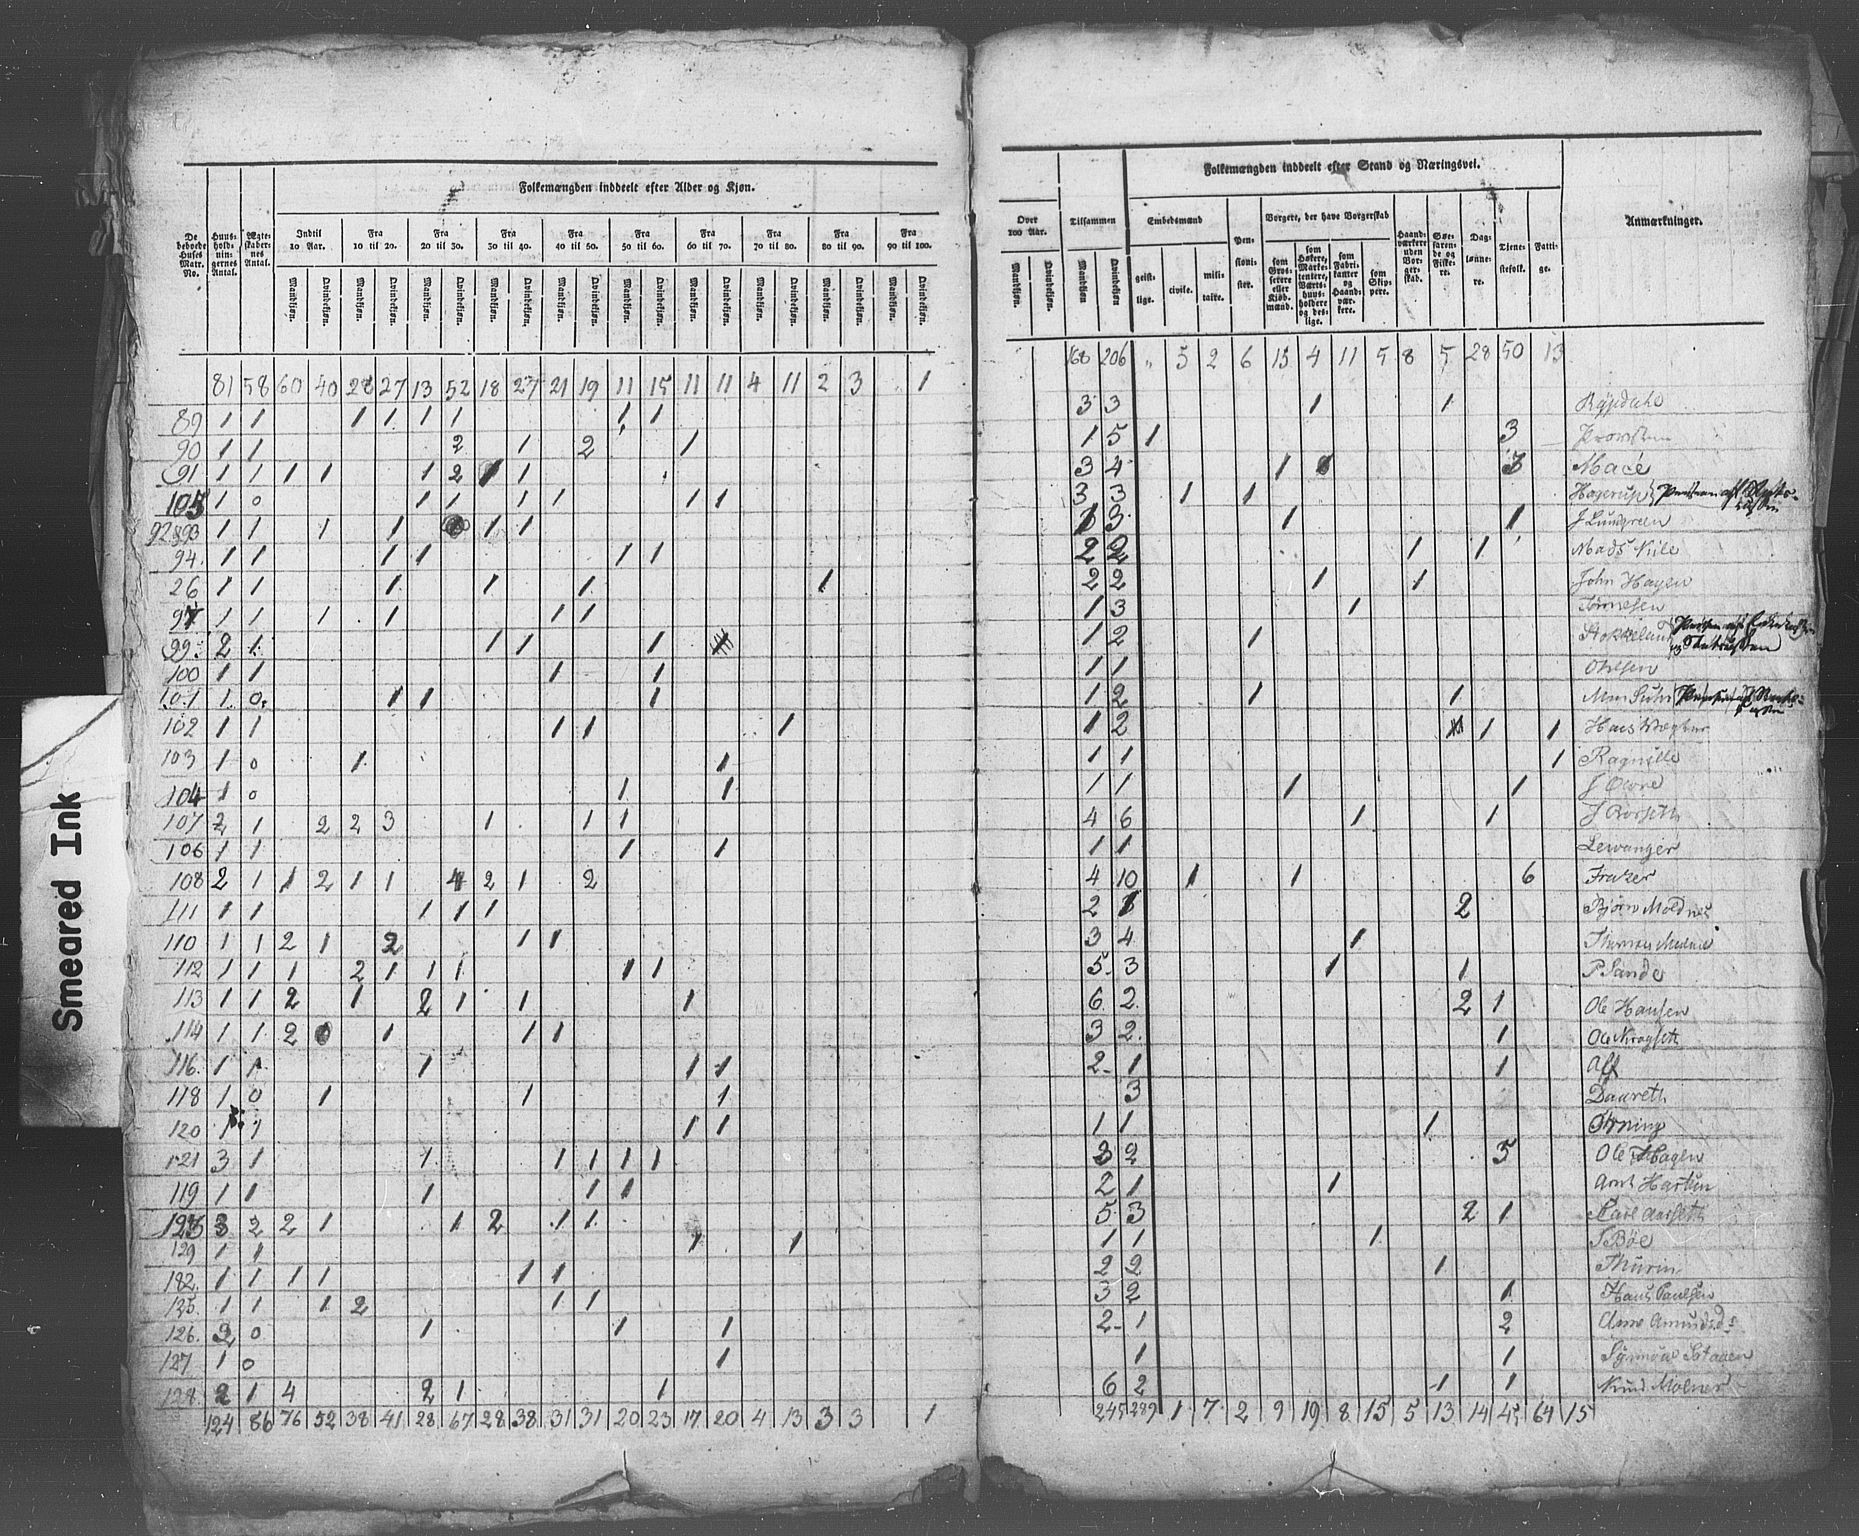 Smeared Ink
Folkemængden inddeelt efter Alder og Kjøn.
De beboede Huses Matr. No.
Huus-hold-nin-gernes Antal.
Ægte-skaber-nes Antal.
Indtil 10 Aar.
Fra 10 til 20.
Fra 20 til 30.
Fra 30 til 40.
Fra 40 til 50.
Fra 50 til 60.
Fra 60 til 70.
Fra 70 til 80.
Fra 80 til 90.
Fra 90 til 100.
Mandkjøn. Qvindekjøn. Mandkjøn. Qvindekjøn. Mandkjøn. Qvindekjøn. Mandkjøn. Qvindekjøn. Mandkjøn. Qvindekjøn. Mandkjøn. Qvindekjøn. Mandkjøn. Qvindekjøn. Mandkjøn. Qvindekjøn. Mandkjøn. Qvindekjøn. Mandkjøn. Qvindekjøn.
81 58 60 40 28 27 13 52 18 27 21 19 11 15 11 11 4 11 2 3 1
89 1 1 1 1 1 1 1 1
90 1 1 2 1 2 1
91 1 1 1 1 1 2 1 1
105 1 0 1 1 1 1 1 1
92&93 1 1 1 1 1 1
94 1 1 1 1 1 1
26 1 1 1 1 1 1
97 1 1 1 1 1 1
99 2 1 1 1 1
100 1 1 1 1
101 1 0 1 1 1
102 1 1 1 1 1
103 1 0 1 1
104 1 0 1 1
107 2 1 2 2 3 1 1 1
106 1 1 1 1
108 2 1 1 2 1 1 4 2 1 2
111 1 1 1 1 1
110 1 1 2 1 2 1 1
112 1 1 1 2 1 1 1 1 1
113 1 1 2 1 2 1 1 1
114 1 1 2 1 1 1
116. 1 1 1 1 1
118 1 0 1 1 1
120 1 1 1 1
121 3 1 1 1 1 1 1
119 1 1 1 1 1
3 2 2 1 1 2 1 1
129 1 1 1 1
132. 1 1 1 1 1 1
135. 1 1 1 2 1 1
126. 2 0 1 1 1
127 1 0 1
128. 2 1 4 2 1 1
124 86 76 52 38 41 28 67 28 38 31 31 20 23 17 20 4 13 3 3 1
Over 100 Aar.
Tilsammen
Mandkjøn. Qvindekjøn. Mandkjøn Qvindekjøn
Folkemængden inddeelt efter Stand og Næringsvei.
Embedsmænd
geist-lige. civile. mili-taire.
Pen-sioni-ster.
Borgere, der have Borgerskab
som Gros-serere eller Kjöb-mænd.
som Høkere, Marke-tentere, Værts-huus-holdere og des-lige.
som Fabri-kanter og Haand-vær-kere.
som Skip-pere.
Haand-værkere uden Bor-ger-skab.
Søe-faren-de og Fiske-re.
Dag-lønne-re.
Tjene-stefolk.
Fatti-ge.
Anmærkninger.
168 206 " 5 2 6 13 4 11 5 8 5 28 50 13
3 3 1 1 Rypdahl
1 5 1 3
3 4 1 3 Macé
3 3 1 1 Hagerup
3 1 1 J Lundgreen
2 2 1 1 Mads Kile
2 2 1 1 John Hagen
1 3 1 Tønnesen
1 2 1 Stokkeland
1 1 Ohlsen
1 2 1 1
1 2 1 1 Hans
1 1 1 Ragnilde
1 1 1 1
4 6 1 1 J Rorseth
1 1 Lewanger
4 10 1 1 6 Frazer
2 1 2 Bjørn Moldnes
3 4 1
5 3 1 1 P Sande
6 2 2 1 Ole Hansen
3 2 1 Ole Kragseth
2 1 1
3 Daureth
1 1 1
3 2 5 Ole Hagen
2 1 1
5 3 2 1 Aarseth
1 1 1 Bøe
2 2 1 Thurin
3 2 1 Hans Paulsen
2 1 2 Anne Amundsds
1 1 Synnøve
6 2 1 1 Knud Molner
245 289 1 7 2 9 19 8 15 5 13 14 45 64 15